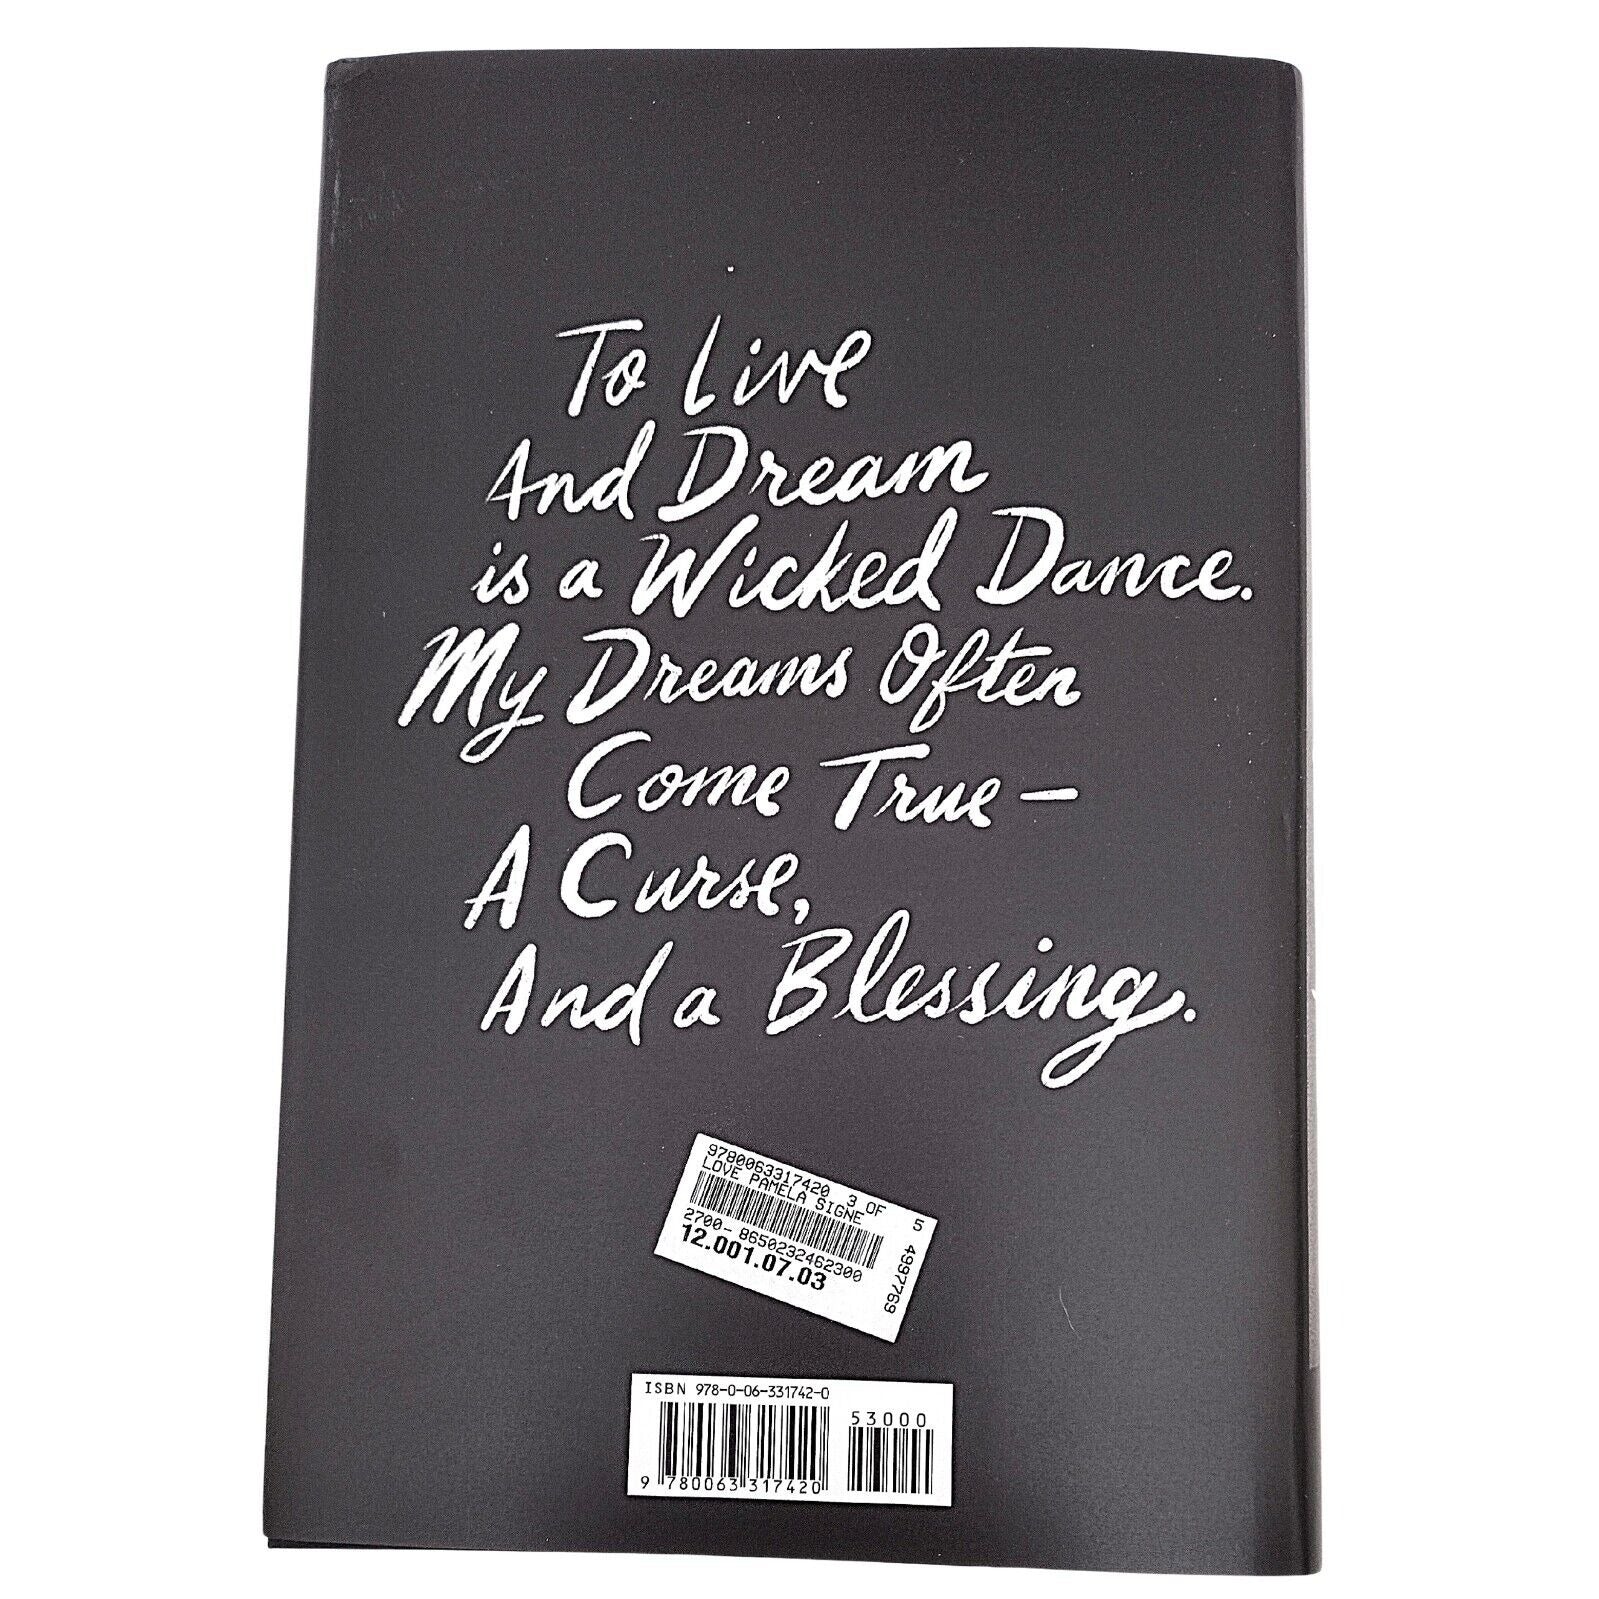 To Live
And Dream
is a Wicked Dance.
My Dreams Often
Come True –
A Curse,
And a Blessing.
9780063317420 3 OF 5
LOVE PAMELA SIGNE
2700- 8650232462300
12.001.07.03
4997769
ISBN 978-0-06-331742-0
53000
9 780063 317420